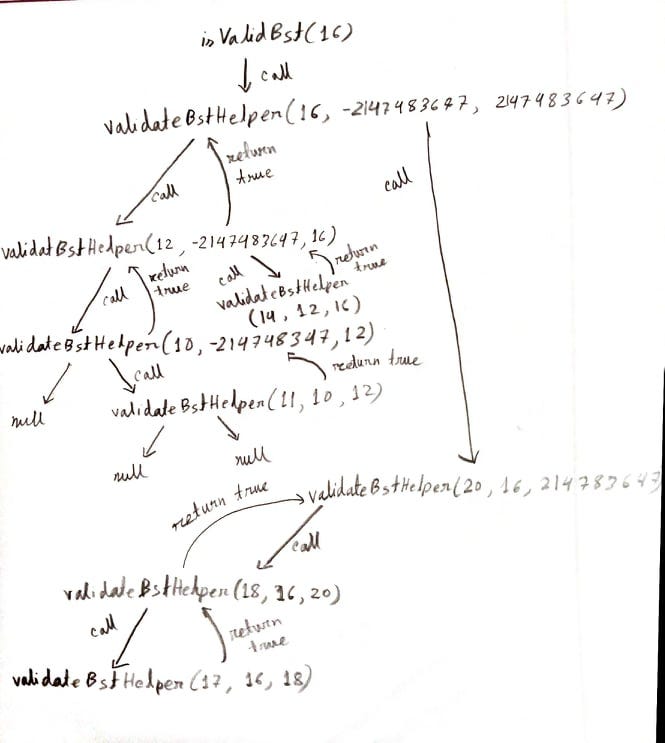 isValidBst(16)
call
validateBstHelper(16, -2147483647, 2147483647)
return
true
call
call
validatBstHelper(12, -2147483647, 16)
return
true
call
return
true
call
validateBstHelper
(14, 12, 16)
validateBstHelper(10, -214748347, 12)
call
return true
null
validateBstHelper(11, 10, 12)
null
null
return true
validateBstHelper(20, 16, 214783647
call
validateBstHelper(18, 16, 20)
call
return
true
validateBstHelper(17, 16, 18)